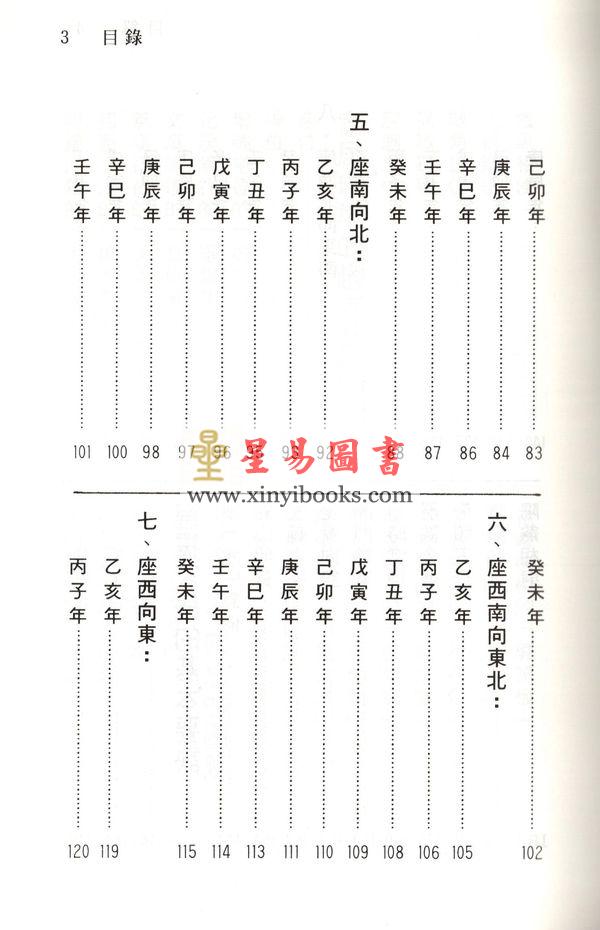 3 目錄
己卯年……83
庚辰年……84
辛巳年……86
壬午年……87
癸未年……88
五、座南向北：
乙亥年……92
丙子年……
丁丑年……95
戊寅年……96
己卯年……97
庚辰年……98
辛巳年……100
壬午年……101
星易圖書
www.xinyibooks.com
癸未年……102
六、座西南向東北：
乙亥年……105
丙子年……106
丁丑年……108
戊寅年……109
己卯年……110
庚辰年……111
辛巳年……113
壬午年……114
癸未年……115
七、座西向東：
乙亥年……119
丙子年……120